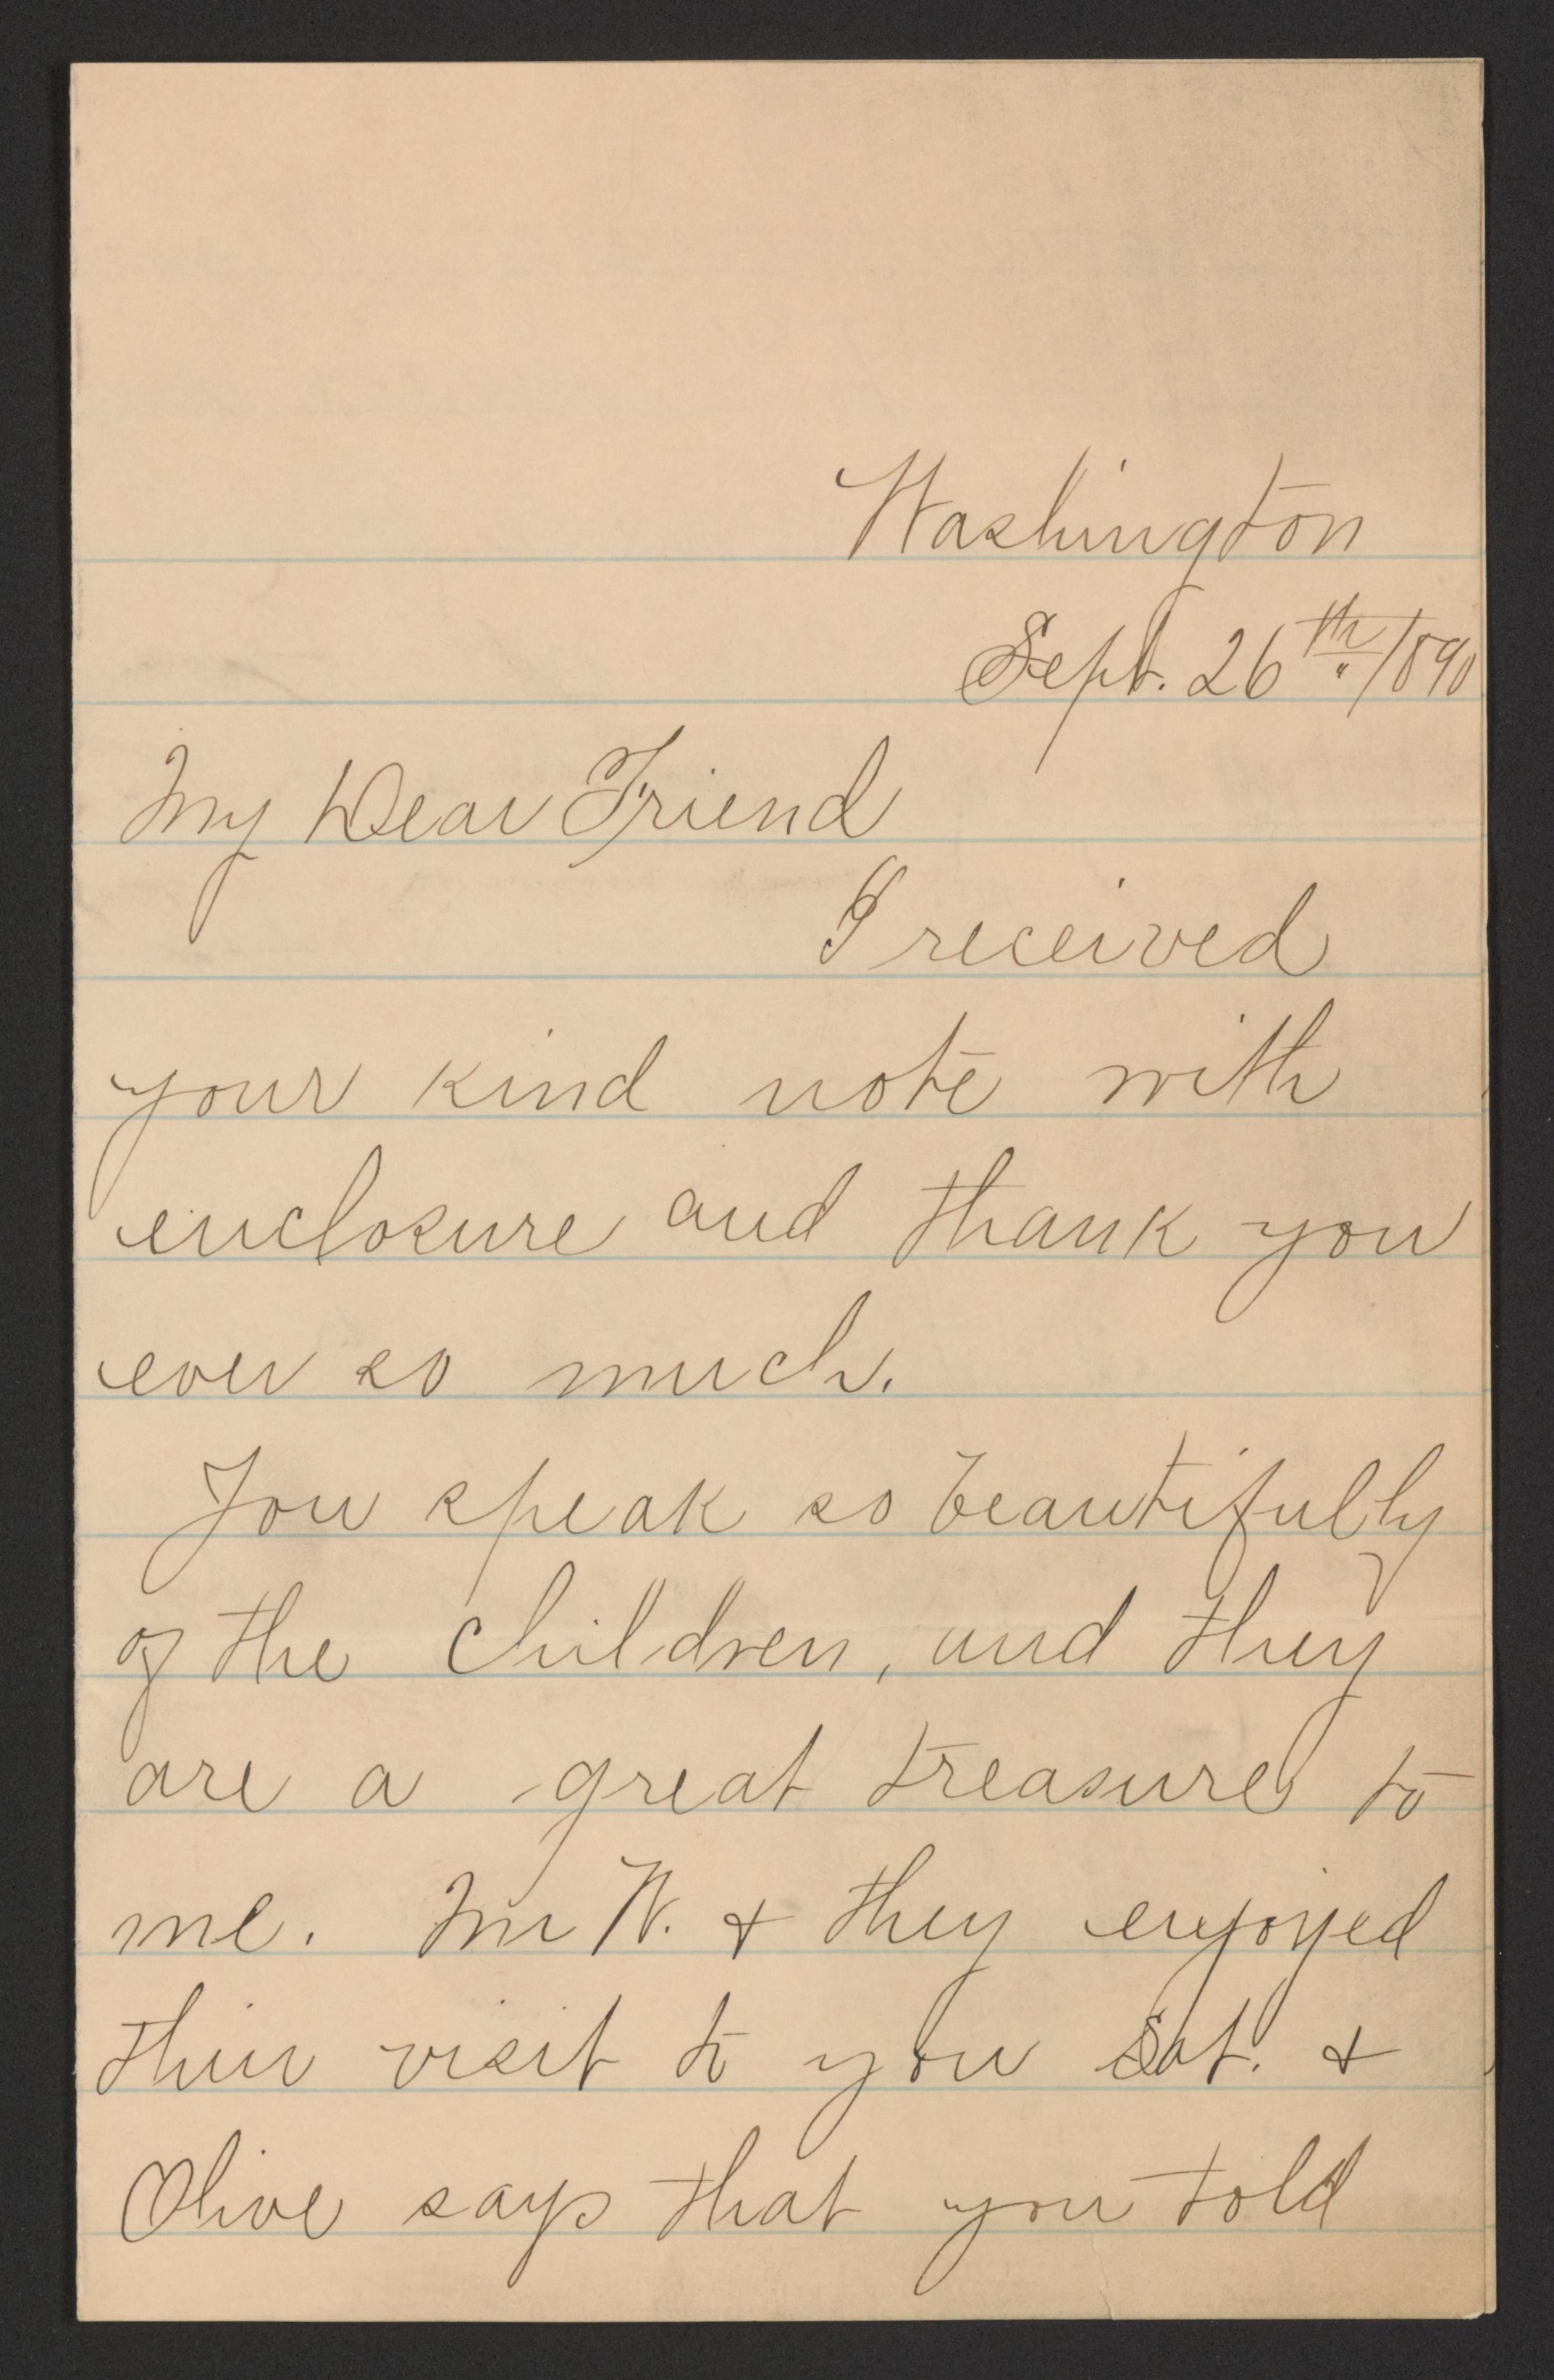 Washington
Sept. 26th/1890
My Dear Friend
I received
your kind note with
enclosure and thank you
ever so much.
You speak so beautifully
of the children, and they
are a great treasure to
me. Mr W. & they enjoyed
their visit to you Sat. &
Olive says that you told